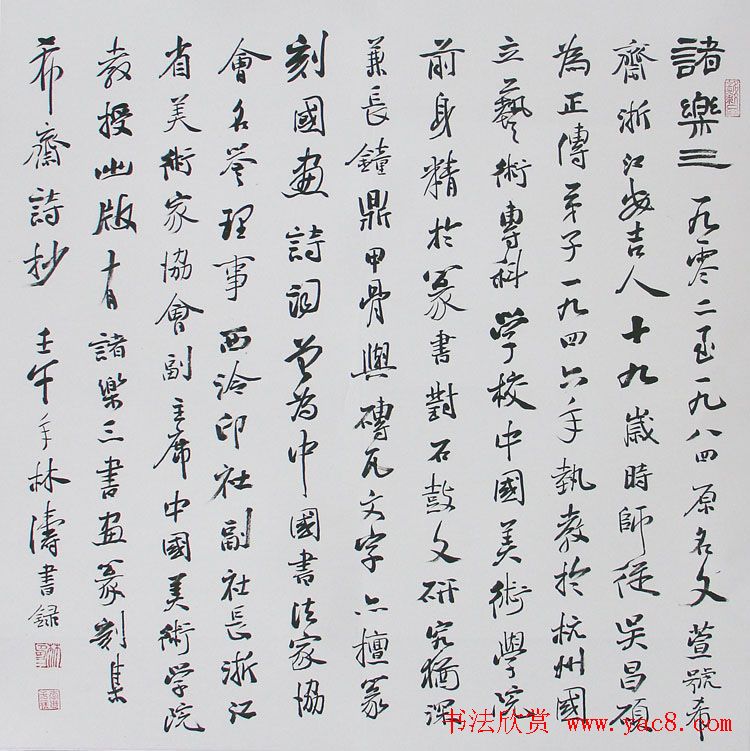 諸樂三 一九零二至一九八四原名文萱號希
齋浙江安吉人十九歲時師從吴昌碩
為正傳弟子一九四六年執教於杭州國
立藝術專科学校中國美術學院
前身精於篆書對石鼓文研究猶深
兼長鐘鼎甲骨與磚瓦文字亦擅篆
刻國畫詩詞曾為中國書法家協
會名誉理事西泠印社副社長浙江
省美術家協會副主席中國美術学院
教授出版有諸樂三書画篆刻集
希齋詩抄 壬午年林濤書録
书法欣赏 www.yac8.com